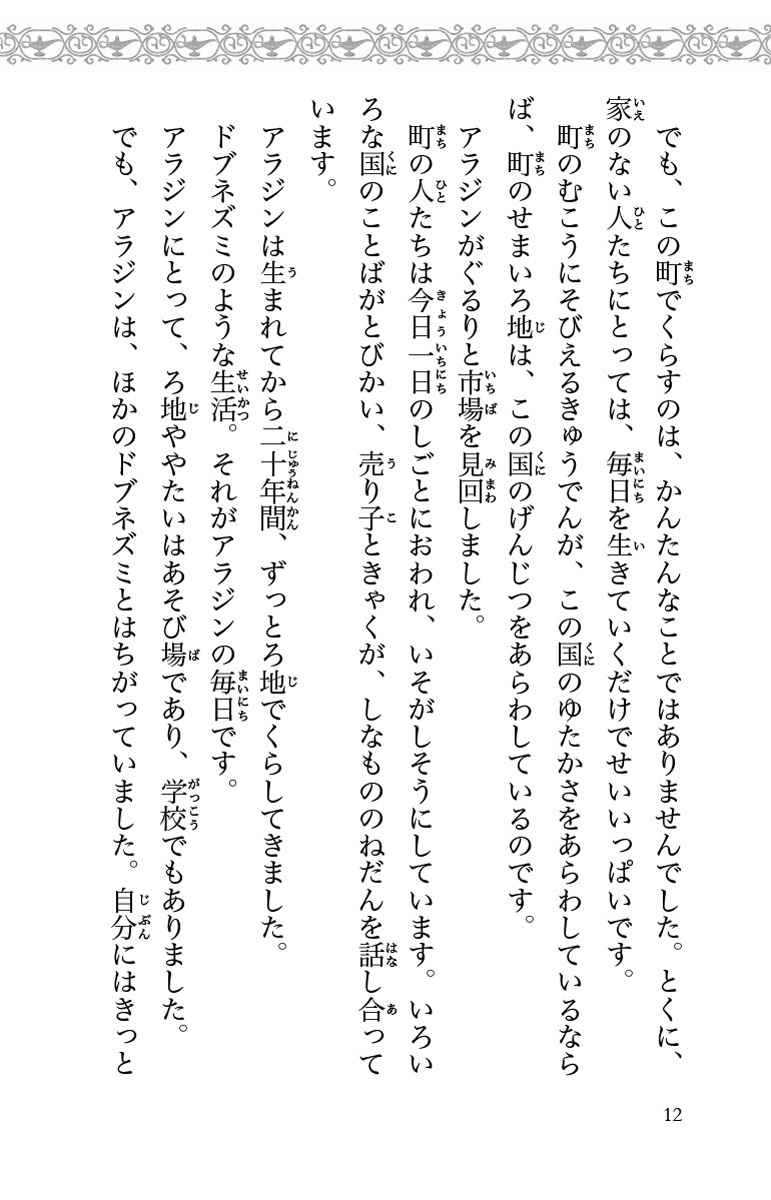 でも、この町でくらすのは、かんたんなことではありませんでした。とくに、
家のない人たちにとっては、毎日を生きていくだけでせいいっぱいです。
町のむこうにそびえるきゅうでんが、この国のゆたかさをあらわしているなら
ば、町のせまいろ地は、この国のげんじつをあらわしているのです。
アラジンがぐるりと市場を見回しました。
町の人たちは今日一日のしごとにおわれ、いそがしそうにしています。いろい
ろな国のことばがとびかい、売り子ときゃくが、しなもののねだんを話し合って
います。
アラジンは生まれてから二十年間、ずっとろ地でくらしてきました。
ドブネズミのような生活。それがアラジンの毎日です。
アラジンにとって、ろ地ややたいはあそび場であり、学校でもありました。
でも、アラジンは、ほかのドブネズミとはちがっていました。自分にはきっと
12